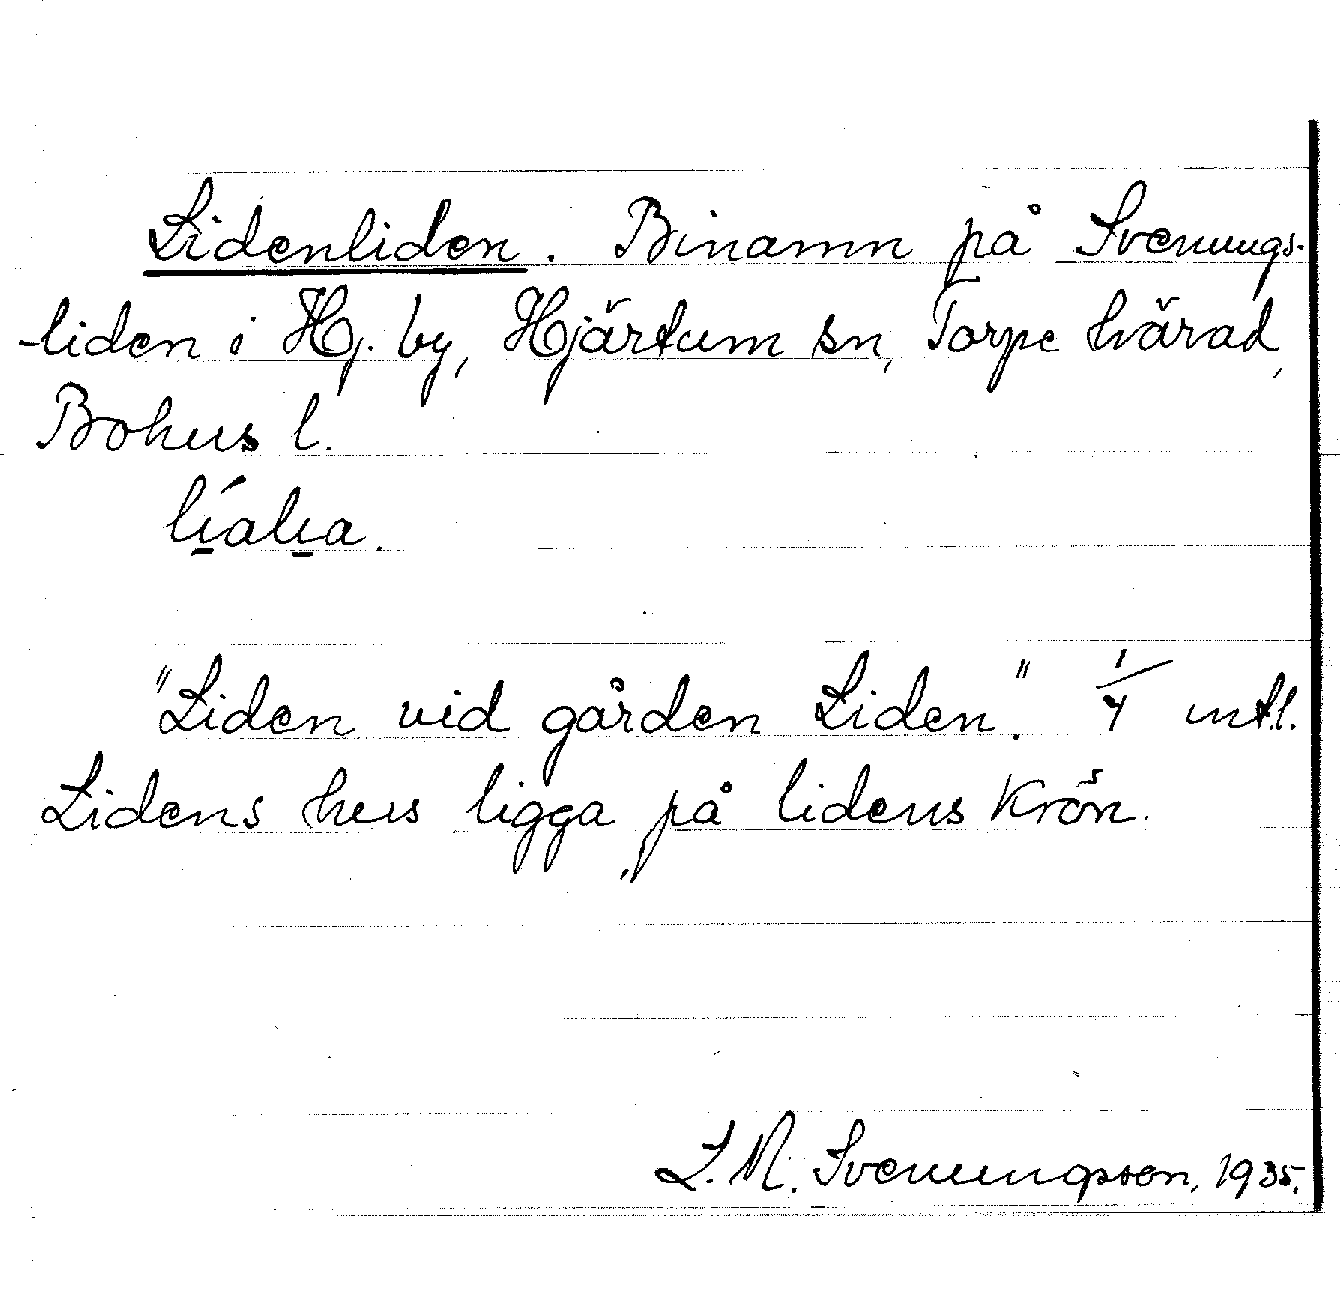 Lidenliden. Binamn på Svenungs-
-liden i Hj. by, Hjärtum sn, Torpe härad,
Bohus l.
lı̱́alı̱a.
"Liden vid gården Liden." 1/4 mtl.
Lidens hus ligga på lidens krön.
L. N. Svenungsson, 1935.